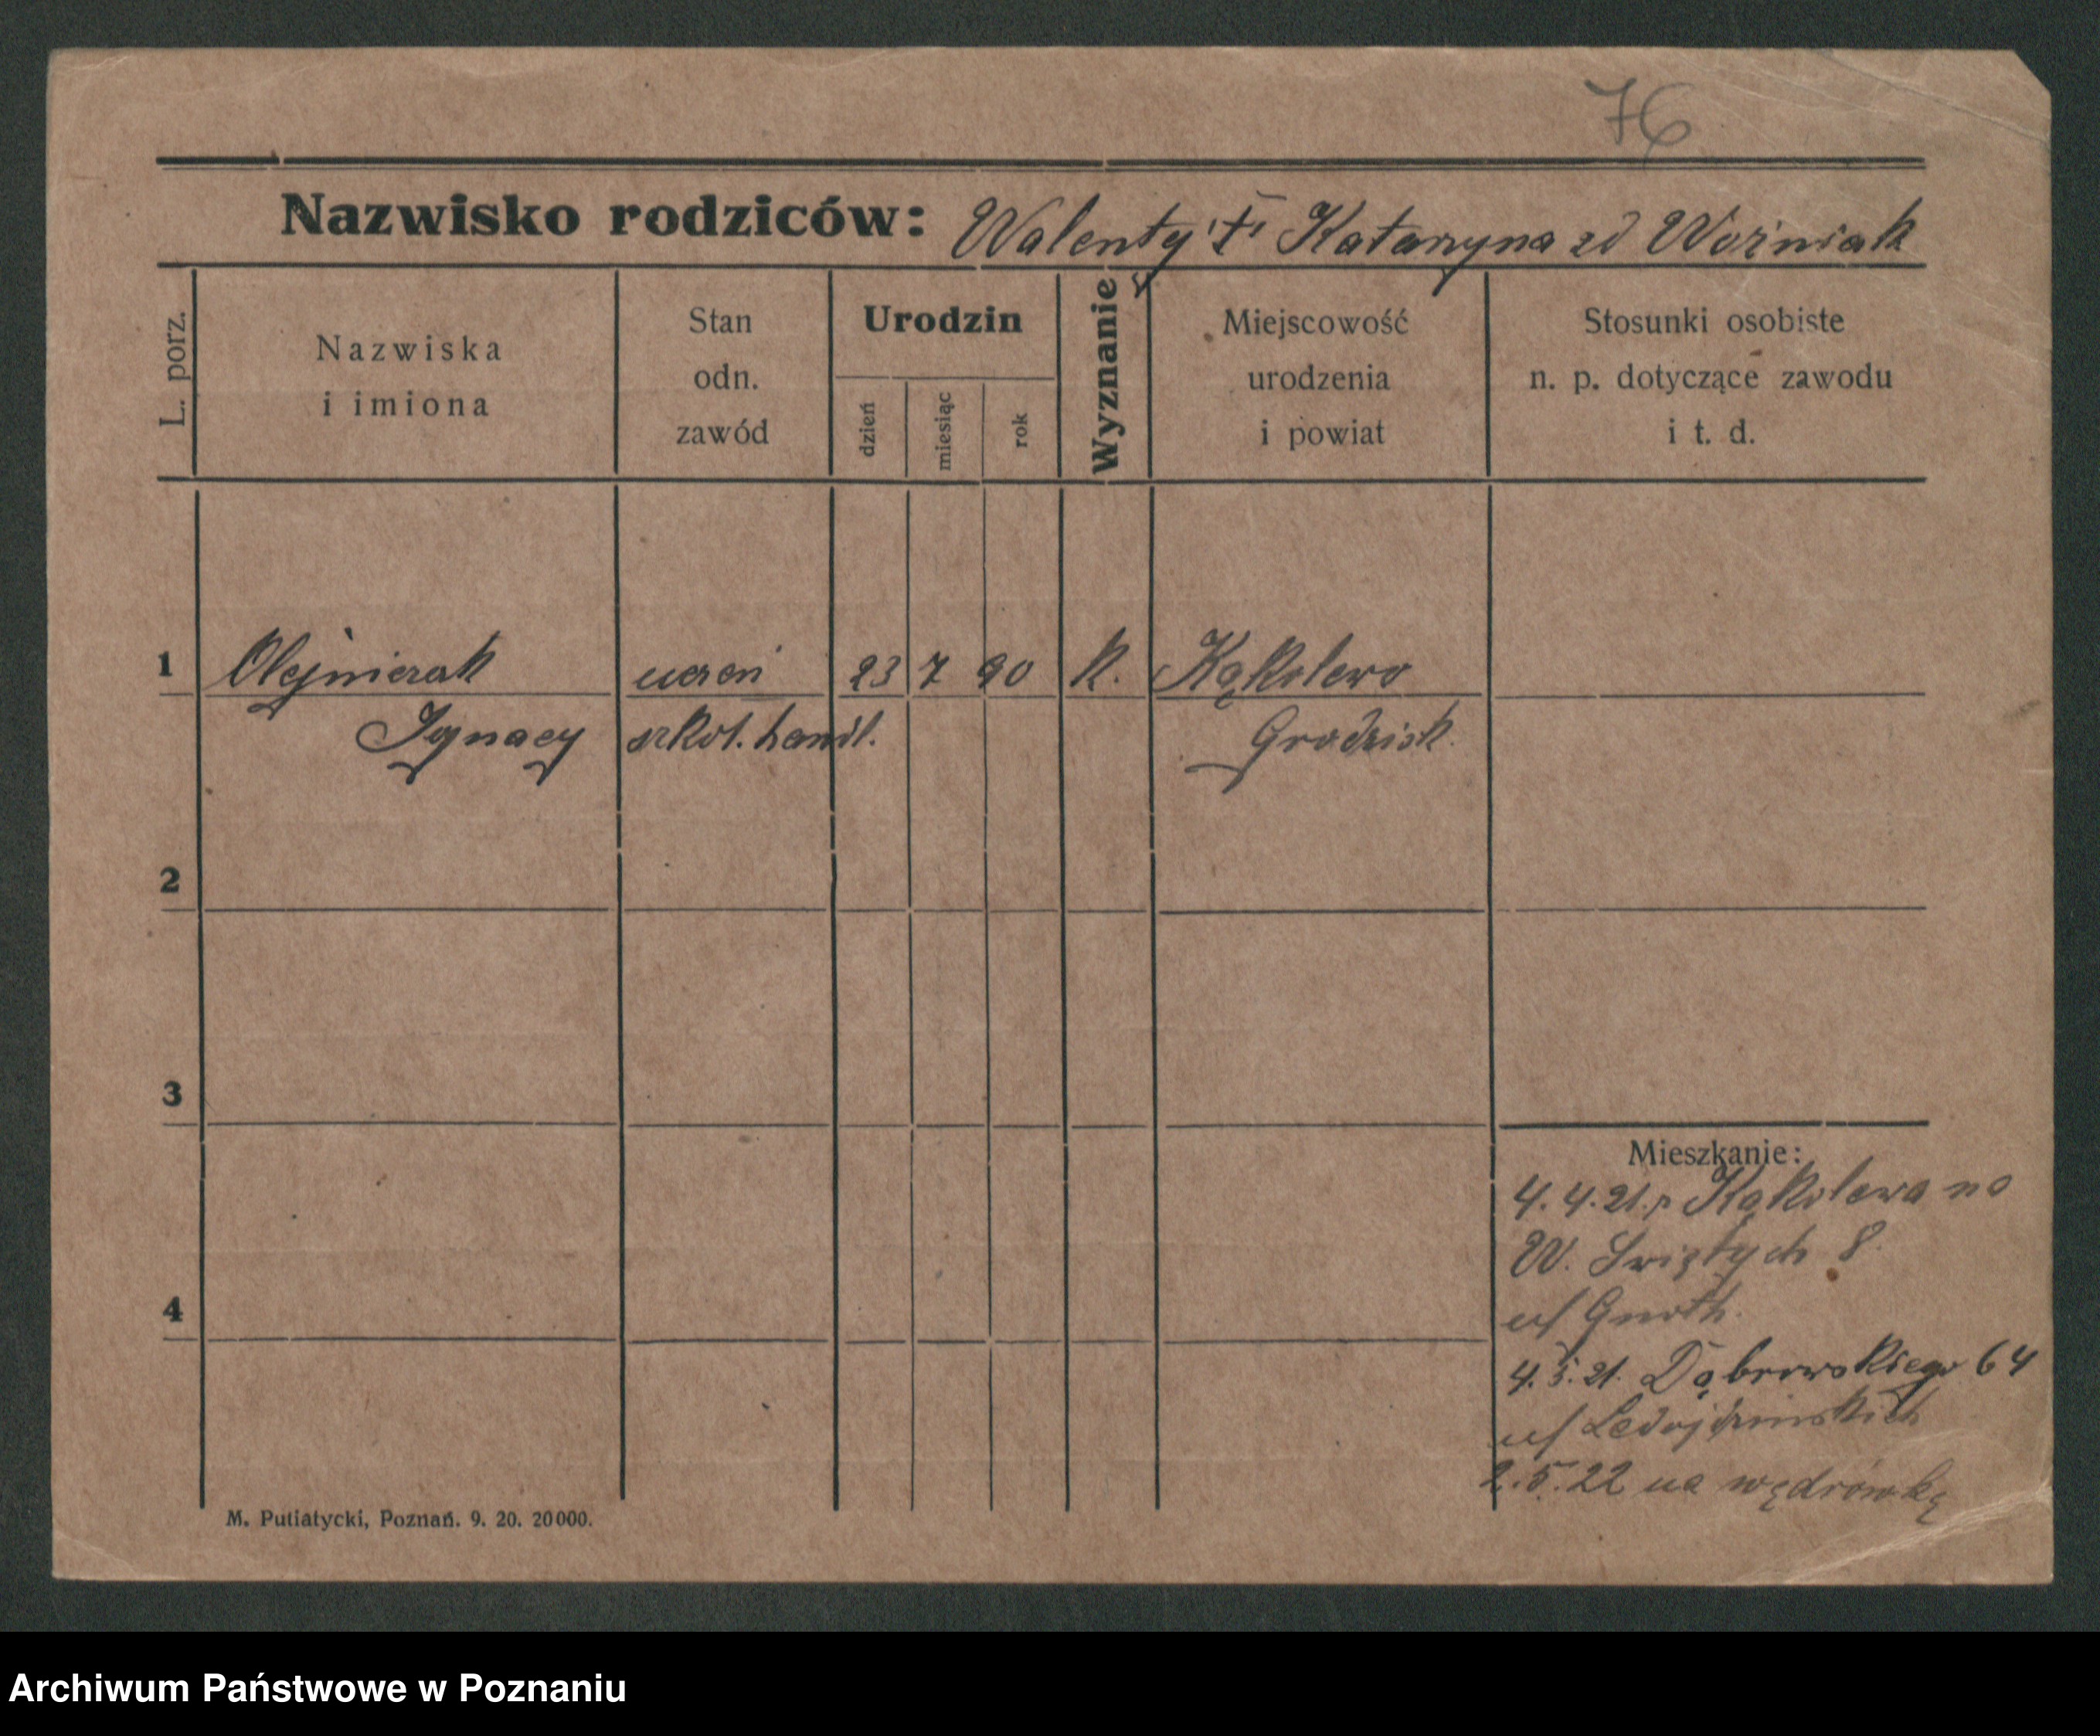 76
Nazwisko rodziców: Walenty † Katarzyna zd Woźniak
L. porz.
Nazwiska
i imiona
Stan
odn.
zawód
Urodzin
dzień
miesiąc
rok
Wyznanie
Miejscowość
urodzenia
i powiat
Stosunki osobiste
n. p. dotyczące zawodu
i t. d.
1 Olejniczak uczeń 23 7 90 k. Kąkolewo
Ignacy szkoł. handl. Grodzisk.
2
3
4
Mieszkanie:
4. 4. 21. z Kąkolewa na
W. Świętych 8.
u/ Gnoth.
4. 5. 21. Dąbrowskiego 64
u/
2. 5. 22 na wędrówkę
M. Putiatycki, Poznań. 9. 20. 20000.
Archiwum Państwowe w Poznaniu